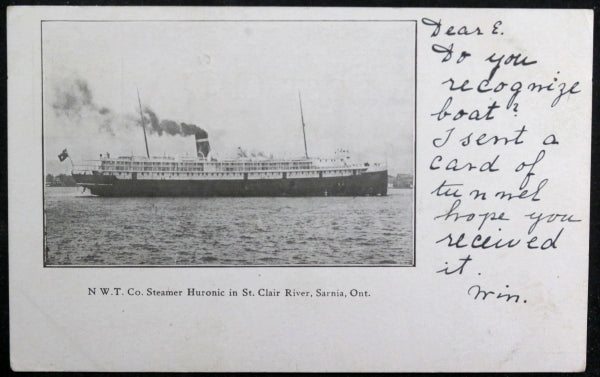 Dear E.
Do you
recognize
boat?
I sent a
card of
tunnel
hope you
received
it.
Win.
N W.T. Co. Steamer Huronic in St. Clair River, Sarnia, Ont.